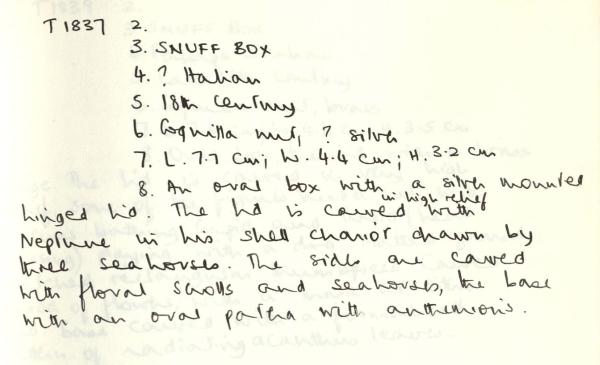 T1837 2.
3. SNUFF BOX
4. ? Italian
5. 18th century
6. Coquilla nut, ? silver
7. L. 7.7 cm; W. 4.4 cm; H. 3.2 cm
8. An oval box with a silver mounted
hinged lid. The lid is carved in high relief with
Neptune in his shell chariot drawn by
three seahorses. The sides are carved
with floral scrolls and seahorses, the base
with an oval patera with anthemions.